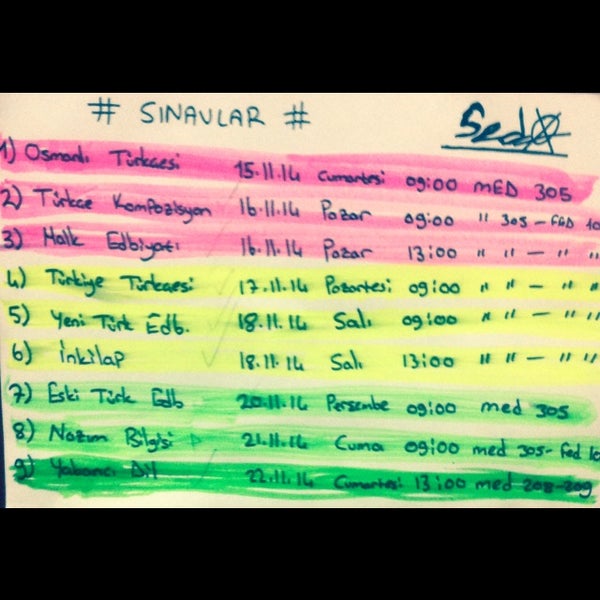 # SINAVLAR #
Seda
1) Osmanlı Türkçesi 15.11.14 Cumartesi 09:00 MED 305
2) Türkçe Kompozisyon 16.11.14 Pazar 09:00 " 305 - FED 10
3) Halk Edbiyatı 16.11.14 Pazar 13:00 " " - " "
4) Türkiye Türkçesi 17.11.14 Pazartesi 09:00 " " - " "
5) Yeni Türk Edb. 18.11.14 Salı 09:00 " " - " "
6) İnkilap 18.11.14 Salı 13:00 " " - " "
7) Eski Türk Edb 20.11.14 Perşembe 09:00 med 305
8) Nazım Bilgisi 21.11.14 Cuma 09:00 med 305- Fed 10
9) Yabancı Dil 22.11.14 Cumartesi 13:00 med 208-309